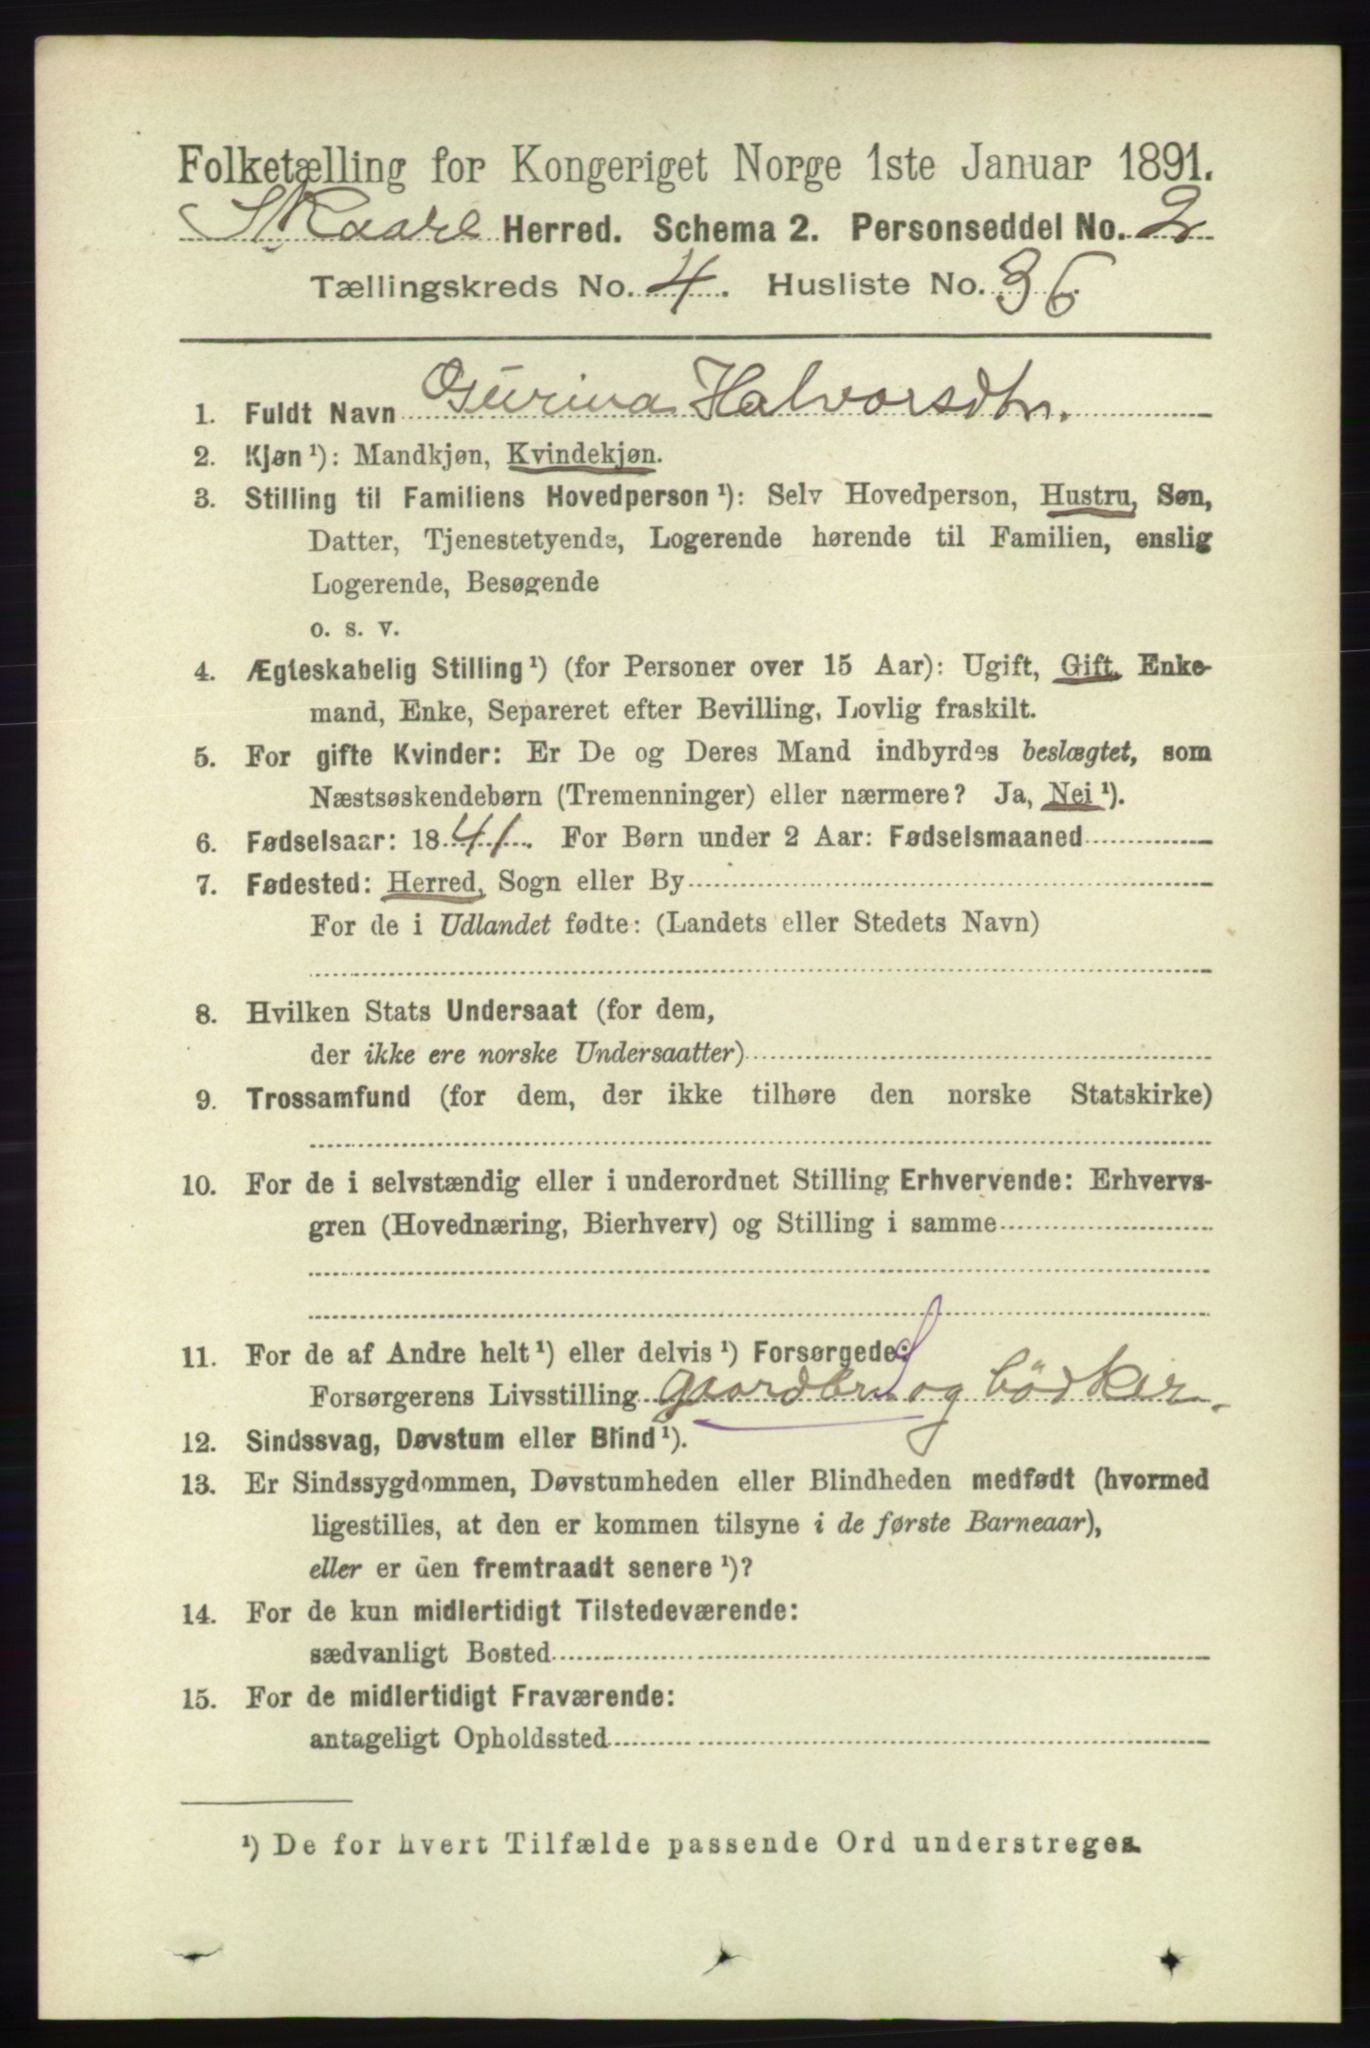 Folketælling for Kongeriget Norge 1ste Januar 1891.
Skaare Herred. Schema 2. Personseddel No. 2
Tællingskreds No. 4. Husliste No. 36.
1. Fuldt Navn Gurina Halvorsdtr.
2. Kjøn ¹): Mandkjøn, Kvindekjøn.
3. Stilling til Familiens Hovedperson ¹): Selv Hovedperson, Hustru, Søn,
Datter, Tjenestetyende, Logerende hørende til Familien, enslig
Logerende, Besøgende
o. s. v.
4. Ægteskabelig Stilling ¹) (for Personer over 15 Aar): Ugift, Gift, Enke-
mand, Enke, Separeret efter Bevilling, Lovlig fraskilt.
5. For gifte Kvinder: Er De og Deres Mand indbyrdes beslægtet, som
Næstsøskendebørn (Tremenninger) eller nærmere? Ja, Nei ¹).
6. Fødselsaar: 1841. For Børn under 2 Aar: Fødselsmaaned
7. Fødested: Herred, Sogn eller By
For de i Udlandet fødte: (Landets eller Stedets Navn)
8. Hvilken Stats Undersaat (for dem,
der ikke ere norske Undersaatter)
9. Trossamfund (for dem, der ikke tilhøre den norske Statskirke)
10. For de i selvstændig eller i underordnet Stilling Erhvervende: Erhvervs-
gren (Hovednæring, Bierhverv) og Stilling i samme
11. For de af Andre helt ¹) eller delvis ¹) Forsørgede:
Forsørgerens Livsstilling gaardbr. og bödker.
12. Sindssvag, Døvstum eller Blind ¹).
13. Er Sindssygdommen, Døvstumheden eller Blindheden medfødt (hvormed
ligestilles, at den er kommen tilsyne i de første Barneaar),
eller er den fremtraadt senere ¹)?
14. For de kun midlertidigt Tilstedeværende:
sædvanligt Bosted
15. For de midlertidigt Fraværende:
antageligt Opholdssted
¹) De for hvert Tilfælde passende Ord understreges.